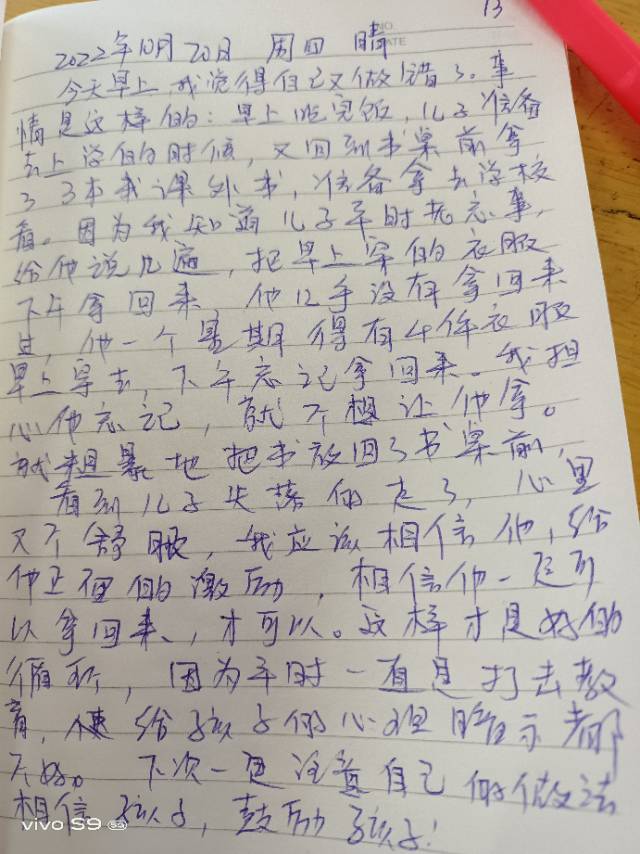 13
NO.
DATE
2022年10月20日 周四 晴
今天早上我觉得自己又做错了。事
情是这样的：早上吃完饭，儿子准备
去上学的时候，又回到书桌前拿
了3本我课外书，准备拿去学校
看。因为我知道儿子平时老忘事，
给他说几遍，把早上穿的衣服
下午拿回来，他几乎没有拿回来
过，他一个星期得有4件衣服
早上穿去，下午忘记拿回来。我担
心他忘记，就不想让他拿。
就粗暴地把书放回了书桌前，
看到儿子失落的走了，心里
又不舒服，我应该相信他，给
他正面的激励，相信他一定可
以拿回来，才可以。这样才是好的
循环，因为平时一直是打击教
育，使给孩子的心理暗示都
不好。下次一定注意自己的做法
相信孩子，鼓励孩子！
vivo S9 5G